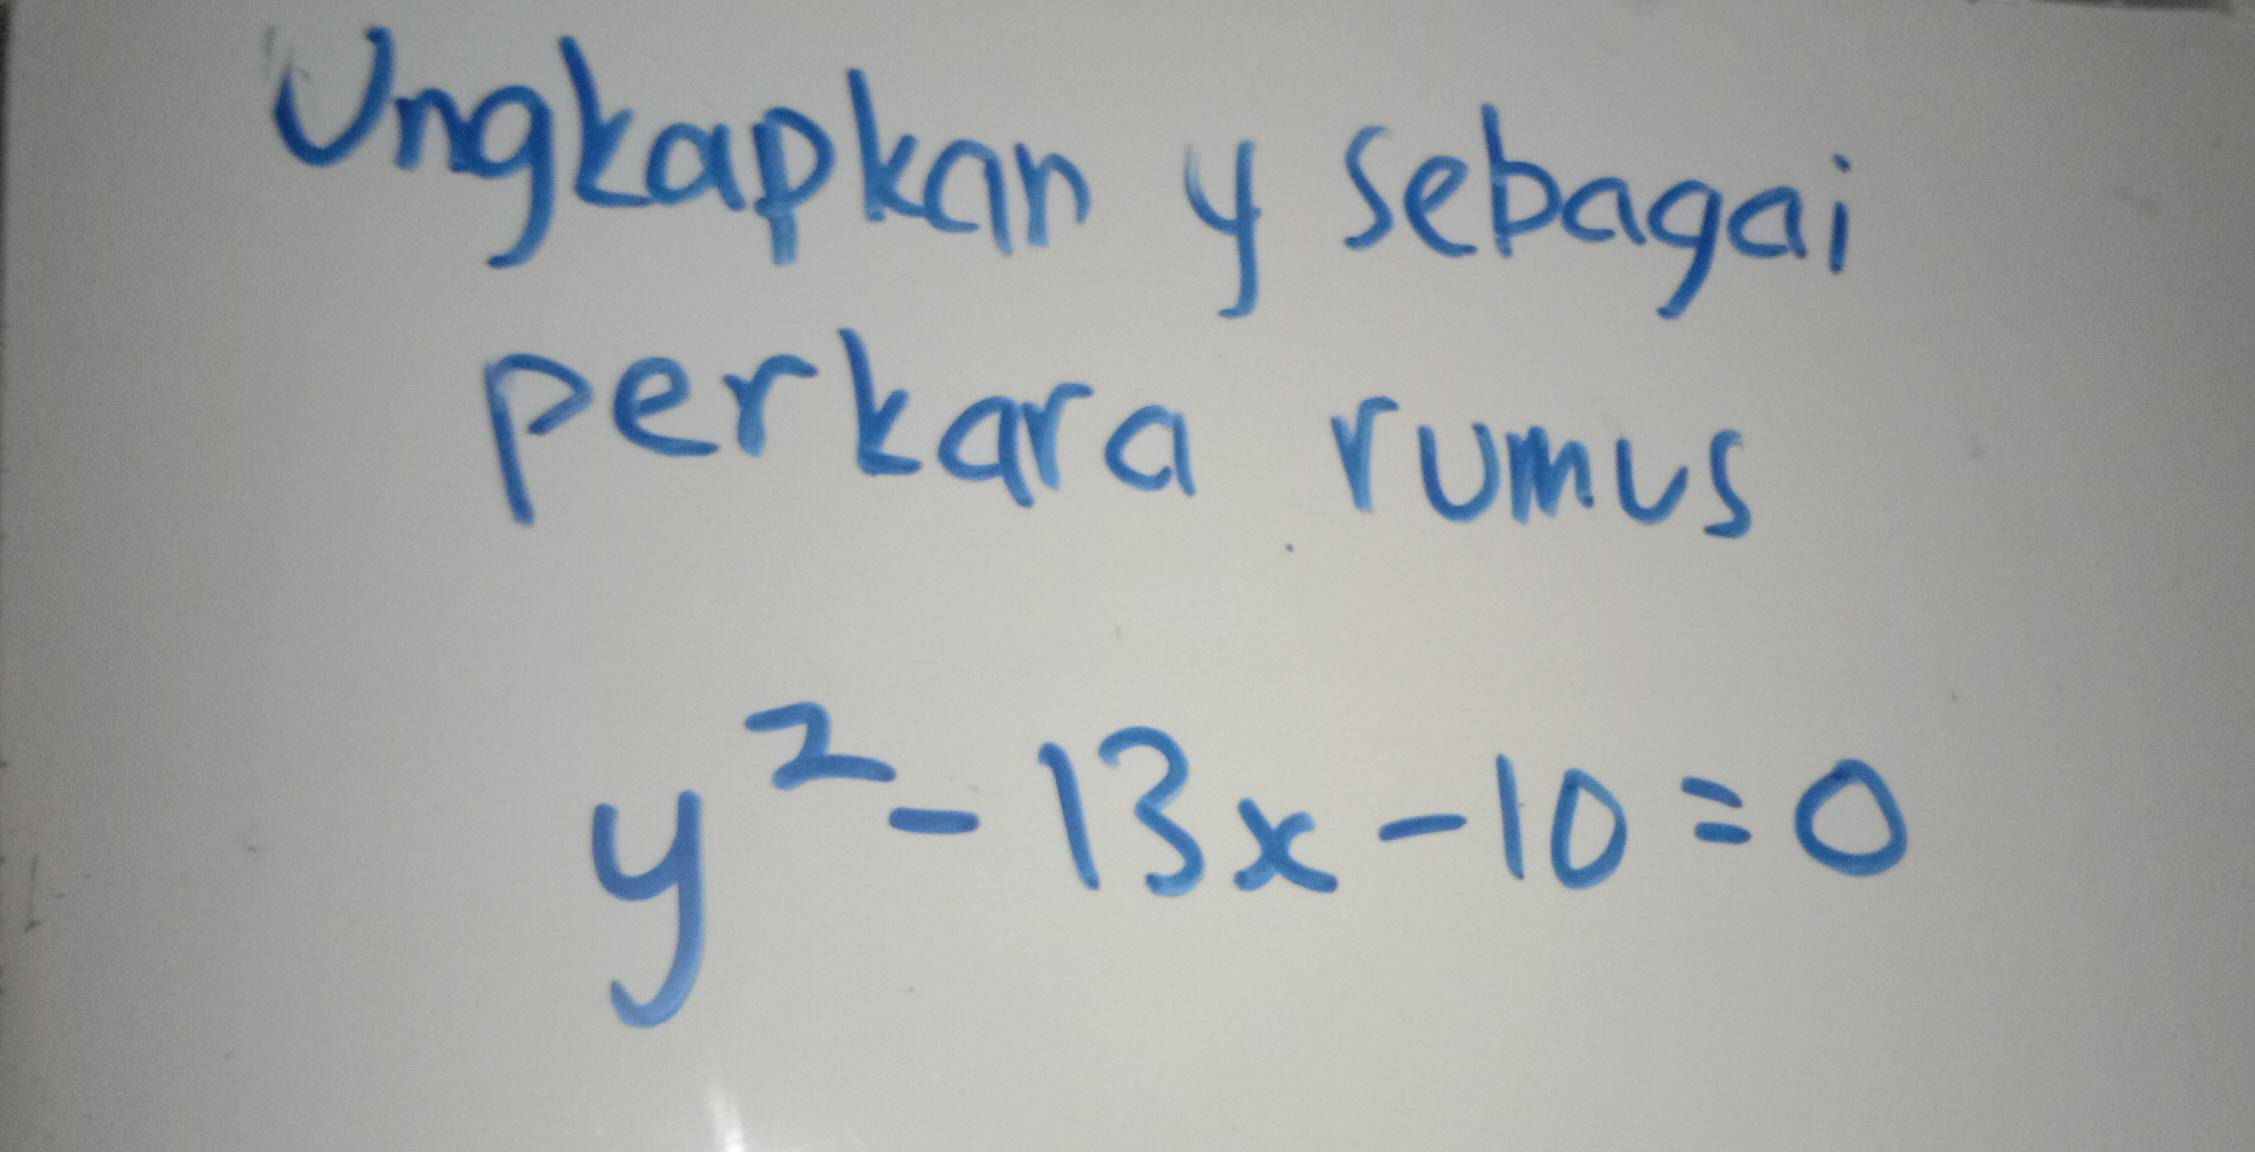 Ungkapkan y sebagai
perkara rumus
y² - 13x - 10 = 0